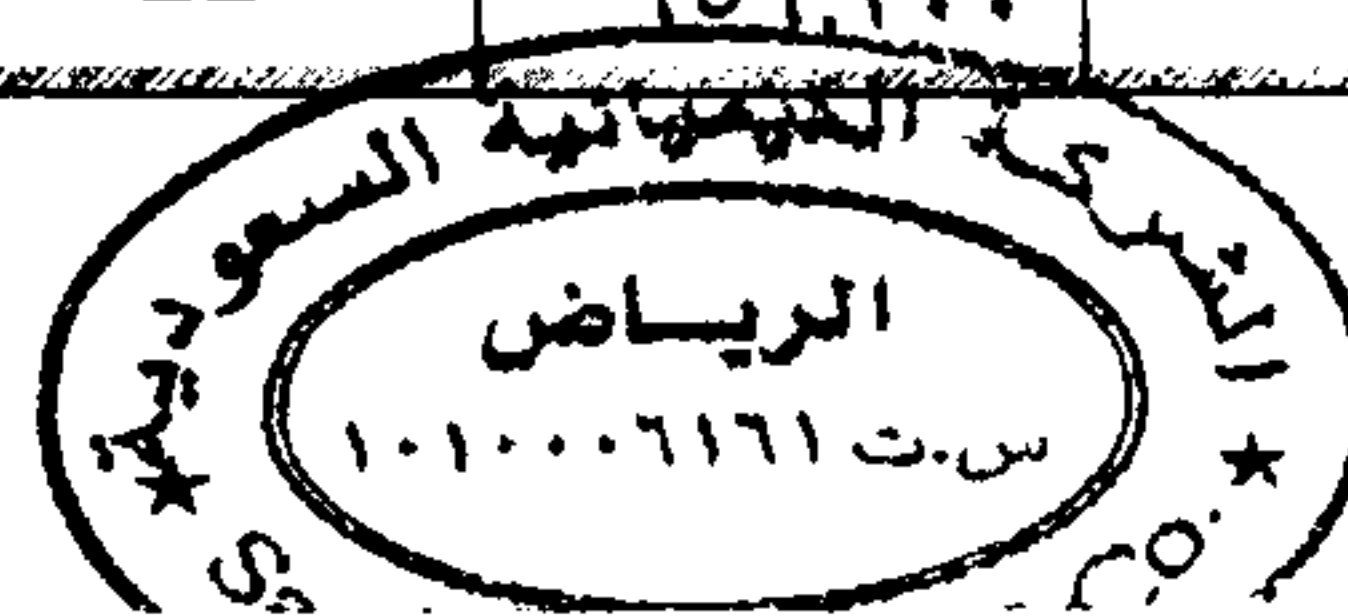 الشركة الكيميائية السعودية
الرياض
س.ت ١٠١٠٠٠٦١٦١